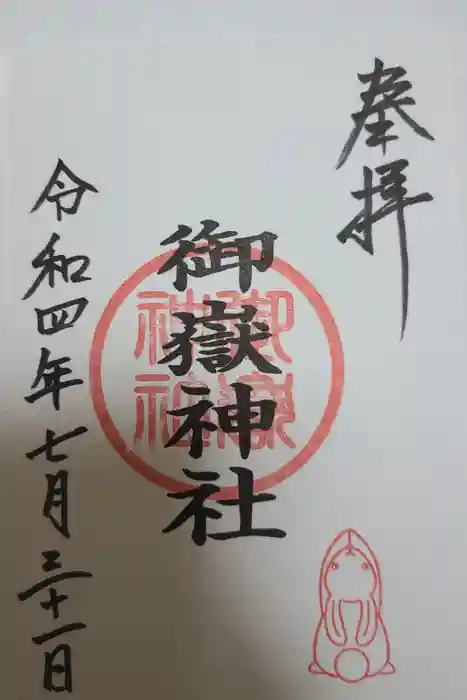 奉拝
御嶽神社
御嶽神社
令和四年七月三十一日